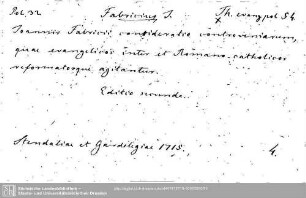 Pol. 32 Fabricius J. Th. evang. pol. 54
Joannis Fabricii consideratio controversiarum,
quae evangelicos inter et Romano-catholicos
reformatosque agitantur.
Editio secunda.
Stendaliae et Gardelegiae 1715. 4.
Sächsische Landesbibliothek -
Staats- und Universitätsbibliothek Dresden